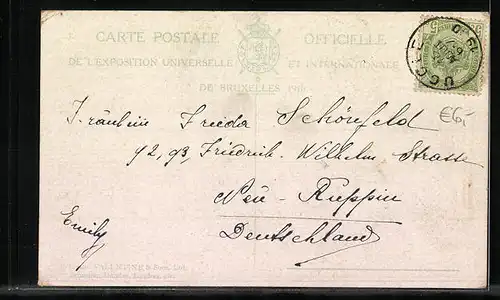 CARTE POSTALE OFFICIELLE
DE L'EXPOSITION UNIVERSELLE ET INTERNATIONALE
DE BRUXELLES
UCCLE
€6,-
Fräulein Frieda Schönfeld
92,93, Friedrich-Wilhelm Strasse
Neu-Ruppin
Deutschland
Emily
VALENTINE & Sons, Ltd.